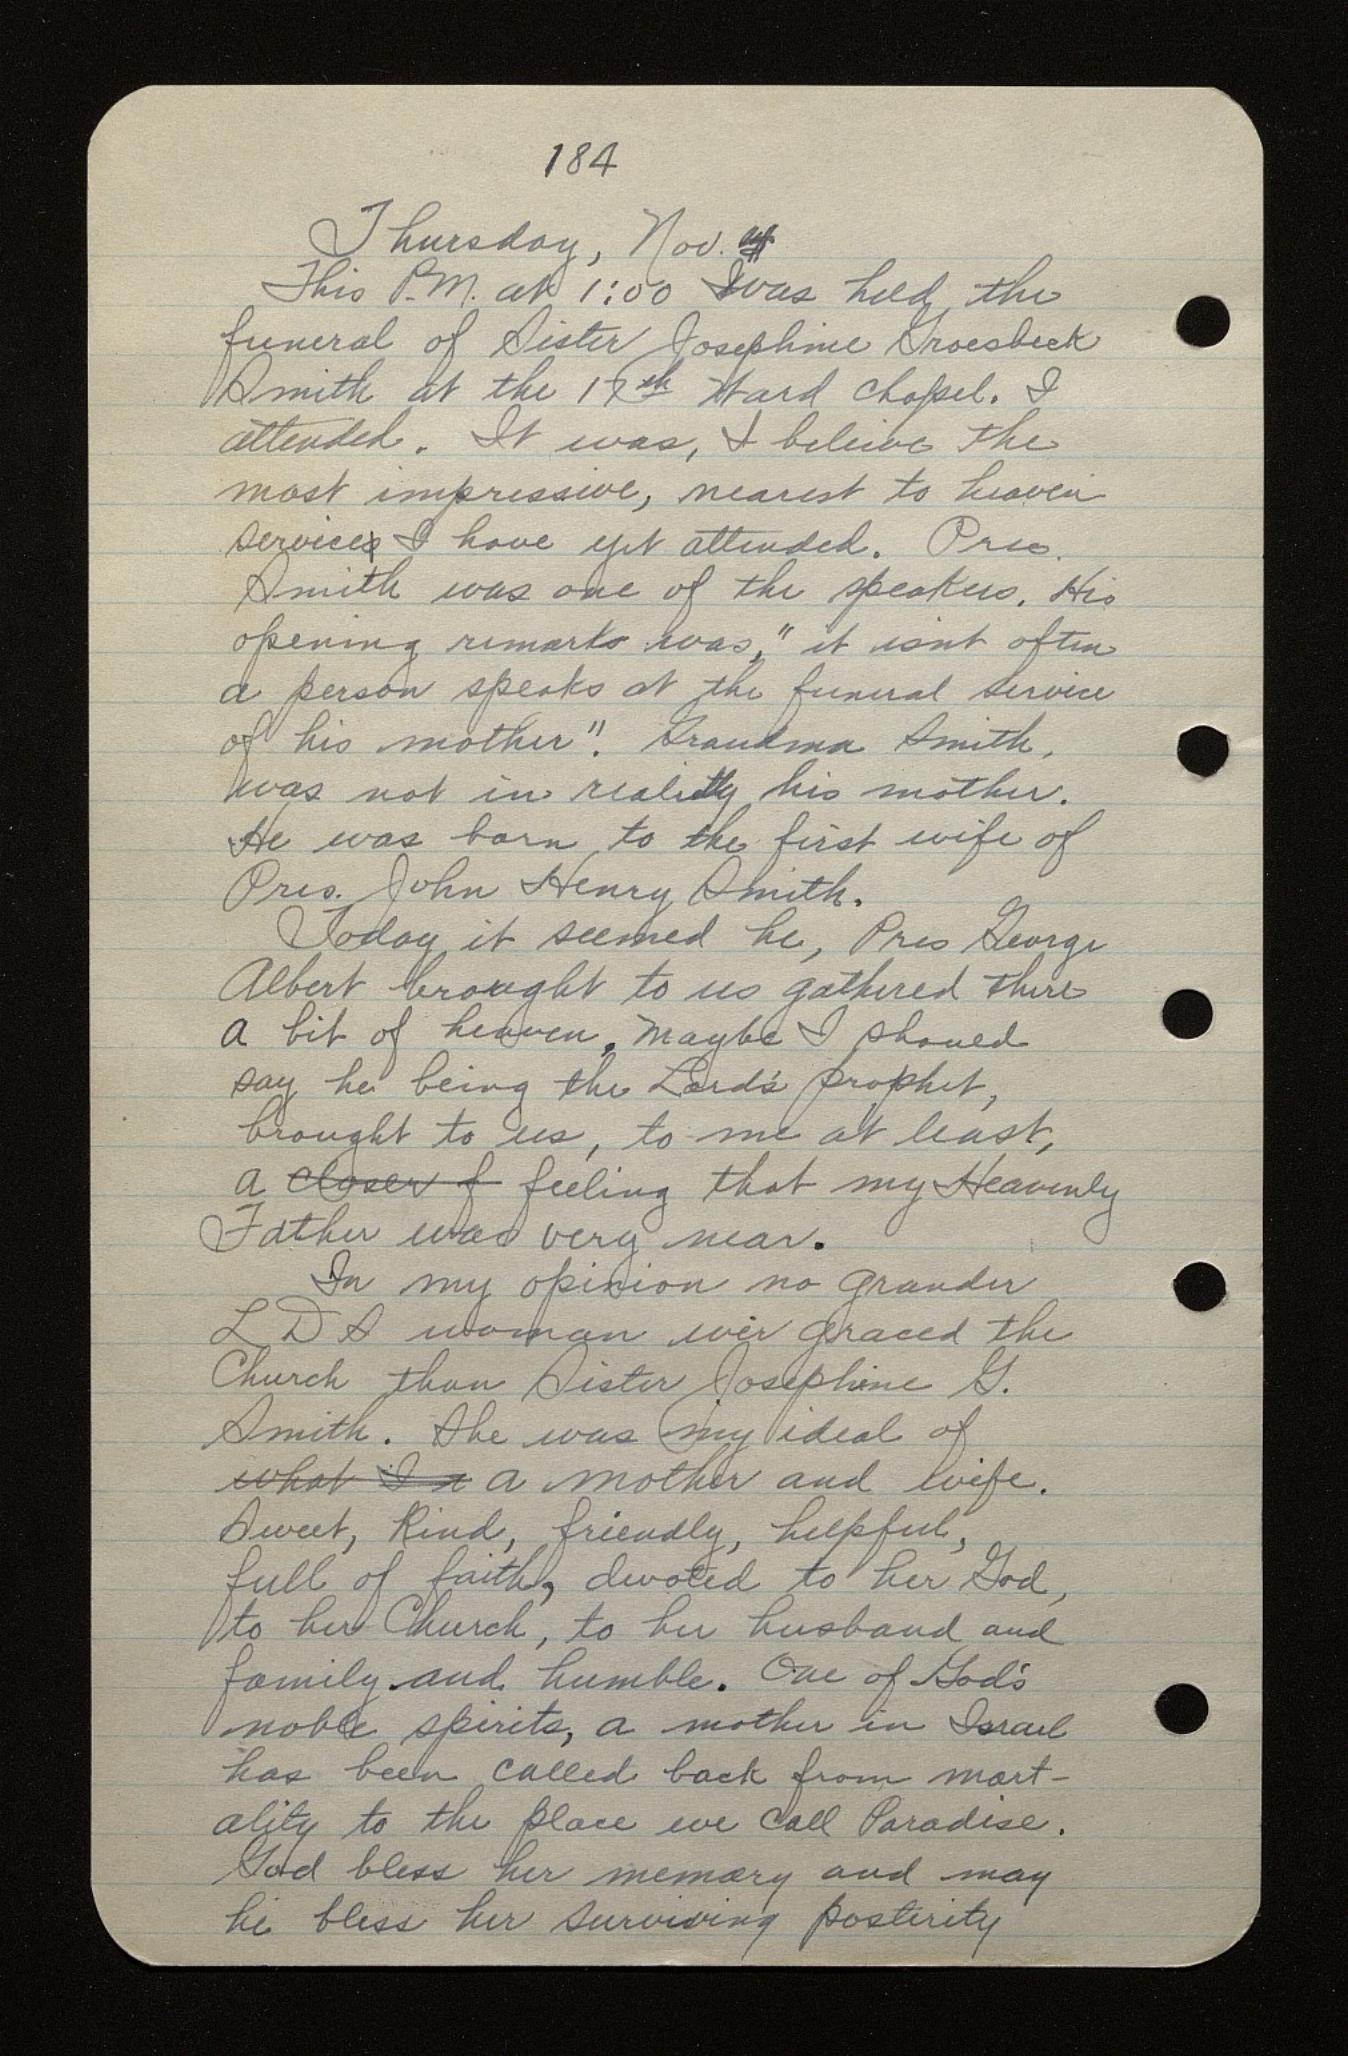 184
Thursday, Nov.
This P.M. at 1:00 was held the
funeral of Sister Josephine Groesbeck
Smith at the 17th Ward Chapel. I
attended. It was, I beleive the
most impressive, nearest to heaven
service I have yet attended. Pres.
Smith was one of the speakers. His
opening remarks was, "it isnt often
a person speaks at the funeral service
of his mother". Grandma Smith,
was not in reality his mother.
He was born to the first wife of
Pres. John Henry Smith.
Today it seemed he, Pres George
Albert brought to us gathered there
a bit of heaven. Maybe I shoued
say he being the Lord's prophet,
brought to us, to me at least,
a closer f feeling that my Heavenly
Father was very near.
In my opinion no grander
L D S woman ever graced the
Church than Sister Josephine G.
Smith. She was my ideal of
what I a mother and wife.
Sweet, Kind, friendly, helpful,
full of faith, devoted to her God,
to her Church, to her husband and
family and humble. One of God's
noble spirits, a mother in Israel
has been called back from mort-
ality to the place we call Paradise.
God bless her memory and may
he bless her surviving posterity